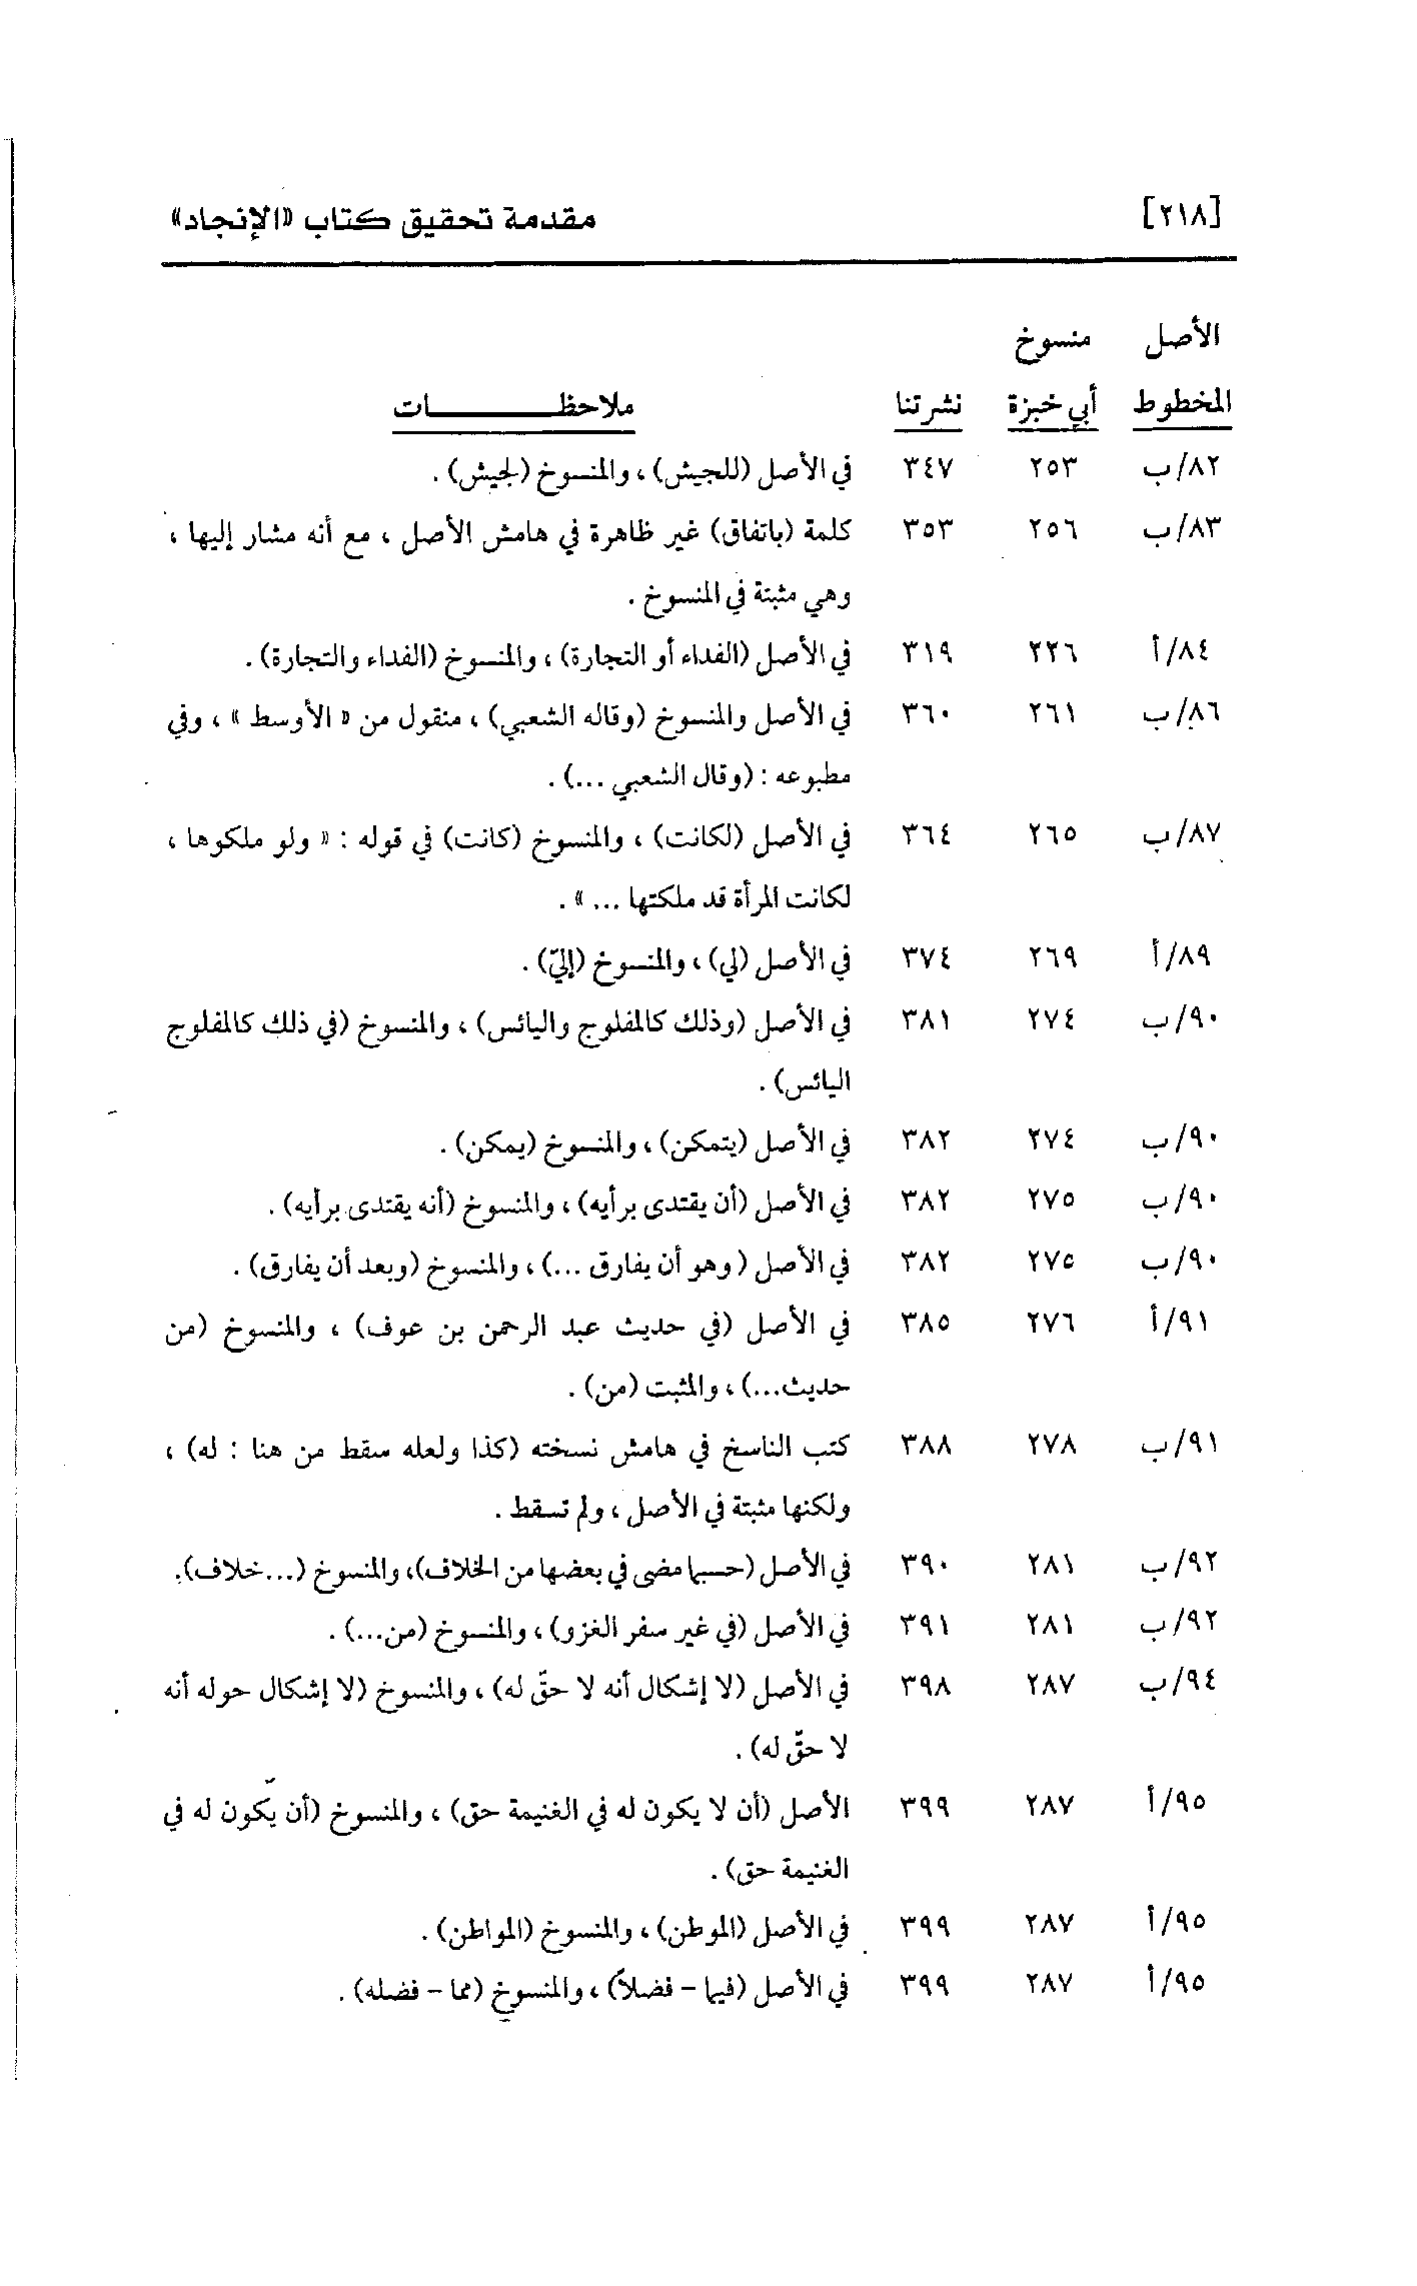 [٢١٨] مقدمة تحقيق كتاب «الإنجاد»
الأصل منسوخ
المخطوط أبي خبزة نشرتنا ملاحظـــــــــات
٨٢/ب ٢٥٣ ٣٤٧ في الأصل (للجيش)، والمنسوخ (لجيش).
٨٣/ب ٢٥٦ ٣٥٣ كلمة (باتفاق) غير ظاهرة في هامش الأصل، مع أنه مشار إليها،
وهي مثبتة في المنسوخ.
٨٤/أ ٢٢٦ ٣١٩ في الأصل (الفداء أو التجارة)، والمنسوخ (الفداء والتجارة).
٨٦/ب ٢٦١ ٣٦٠ في الأصل والمنسوخ (وقاله الشعبي)، منقول من «الأوسط»، وفي
مطبوعه: (وقال الشعبي ...).
٨٧/ب ٢٦٥ ٣٦٤ في الأصل (لكانت)، والمنسوخ (كانت) في قوله: «ولو ملكوها،
لكانت المرأة قد ملكتها ...».
٨٩/أ ٢٦٩ ٣٧٤ في الأصل (لي)، والمنسوخ (إليّ).
٩٠/ب ٢٧٤ ٣٨١ في الأصل (وذلك كالمفلوج واليائس)، والمنسوخ (في ذلك كالمفلوج
اليائس).
٩٠/ب ٢٧٤ ٣٨٢ في الأصل (يتمكن)، والمنسوخ (يمكن).
٩٠/ب ٢٧٥ ٣٨٢ في الأصل (أن يقتدى برأيه)، والمنسوخ (أنه يقتدى برأيه).
٩٠/ب ٢٧٥ ٣٨٢ في الأصل (وهو أن يفارق ...)، والمنسوخ (وبعد أن يفارق).
٩١/أ ٢٧٦ ٣٨٥ في الأصل (في حديث عبد الرحمن بن عوف)، والمنسوخ (من
حديث...)، والمثبت (من).
٩١/ب ٢٧٨ ٣٨٨ كتب الناسخ في هامش نسخته (كذا ولعله سقط من هنا: له)،
ولكنها مثبتة في الأصل، ولم تسقط.
٩٢/ب ٢٨١ ٣٩٠ في الأصل (حسبما مضى في بعضها من الخلاف)، والمنسوخ (...خلاف).
٩٢/ب ٢٨١ ٣٩١ في الأصل (في غير سفر الغزو)، والمنسوخ (من...).
٩٤/ب ٢٨٧ ٣٩٨ في الأصل (لا إشكال أنه لا حقّ له)، والمنسوخ (لا إشكال حوله أنه
لا حقّ له).
٩٥/أ ٢٨٧ ٣٩٩ الأصل (أن لا يكون له في الغنيمة حق)، والمنسوخ (أن يّكون له في
الغنيمة حق).
٩٥/أ ٢٨٧ ٣٩٩ في الأصل (الموطن)، والمنسوخ (المواطن).
٩٥/أ ٢٨٧ ٣٩٩ في الأصل (فيما - فضلاً)، والمنسوخ (مما - فضله).